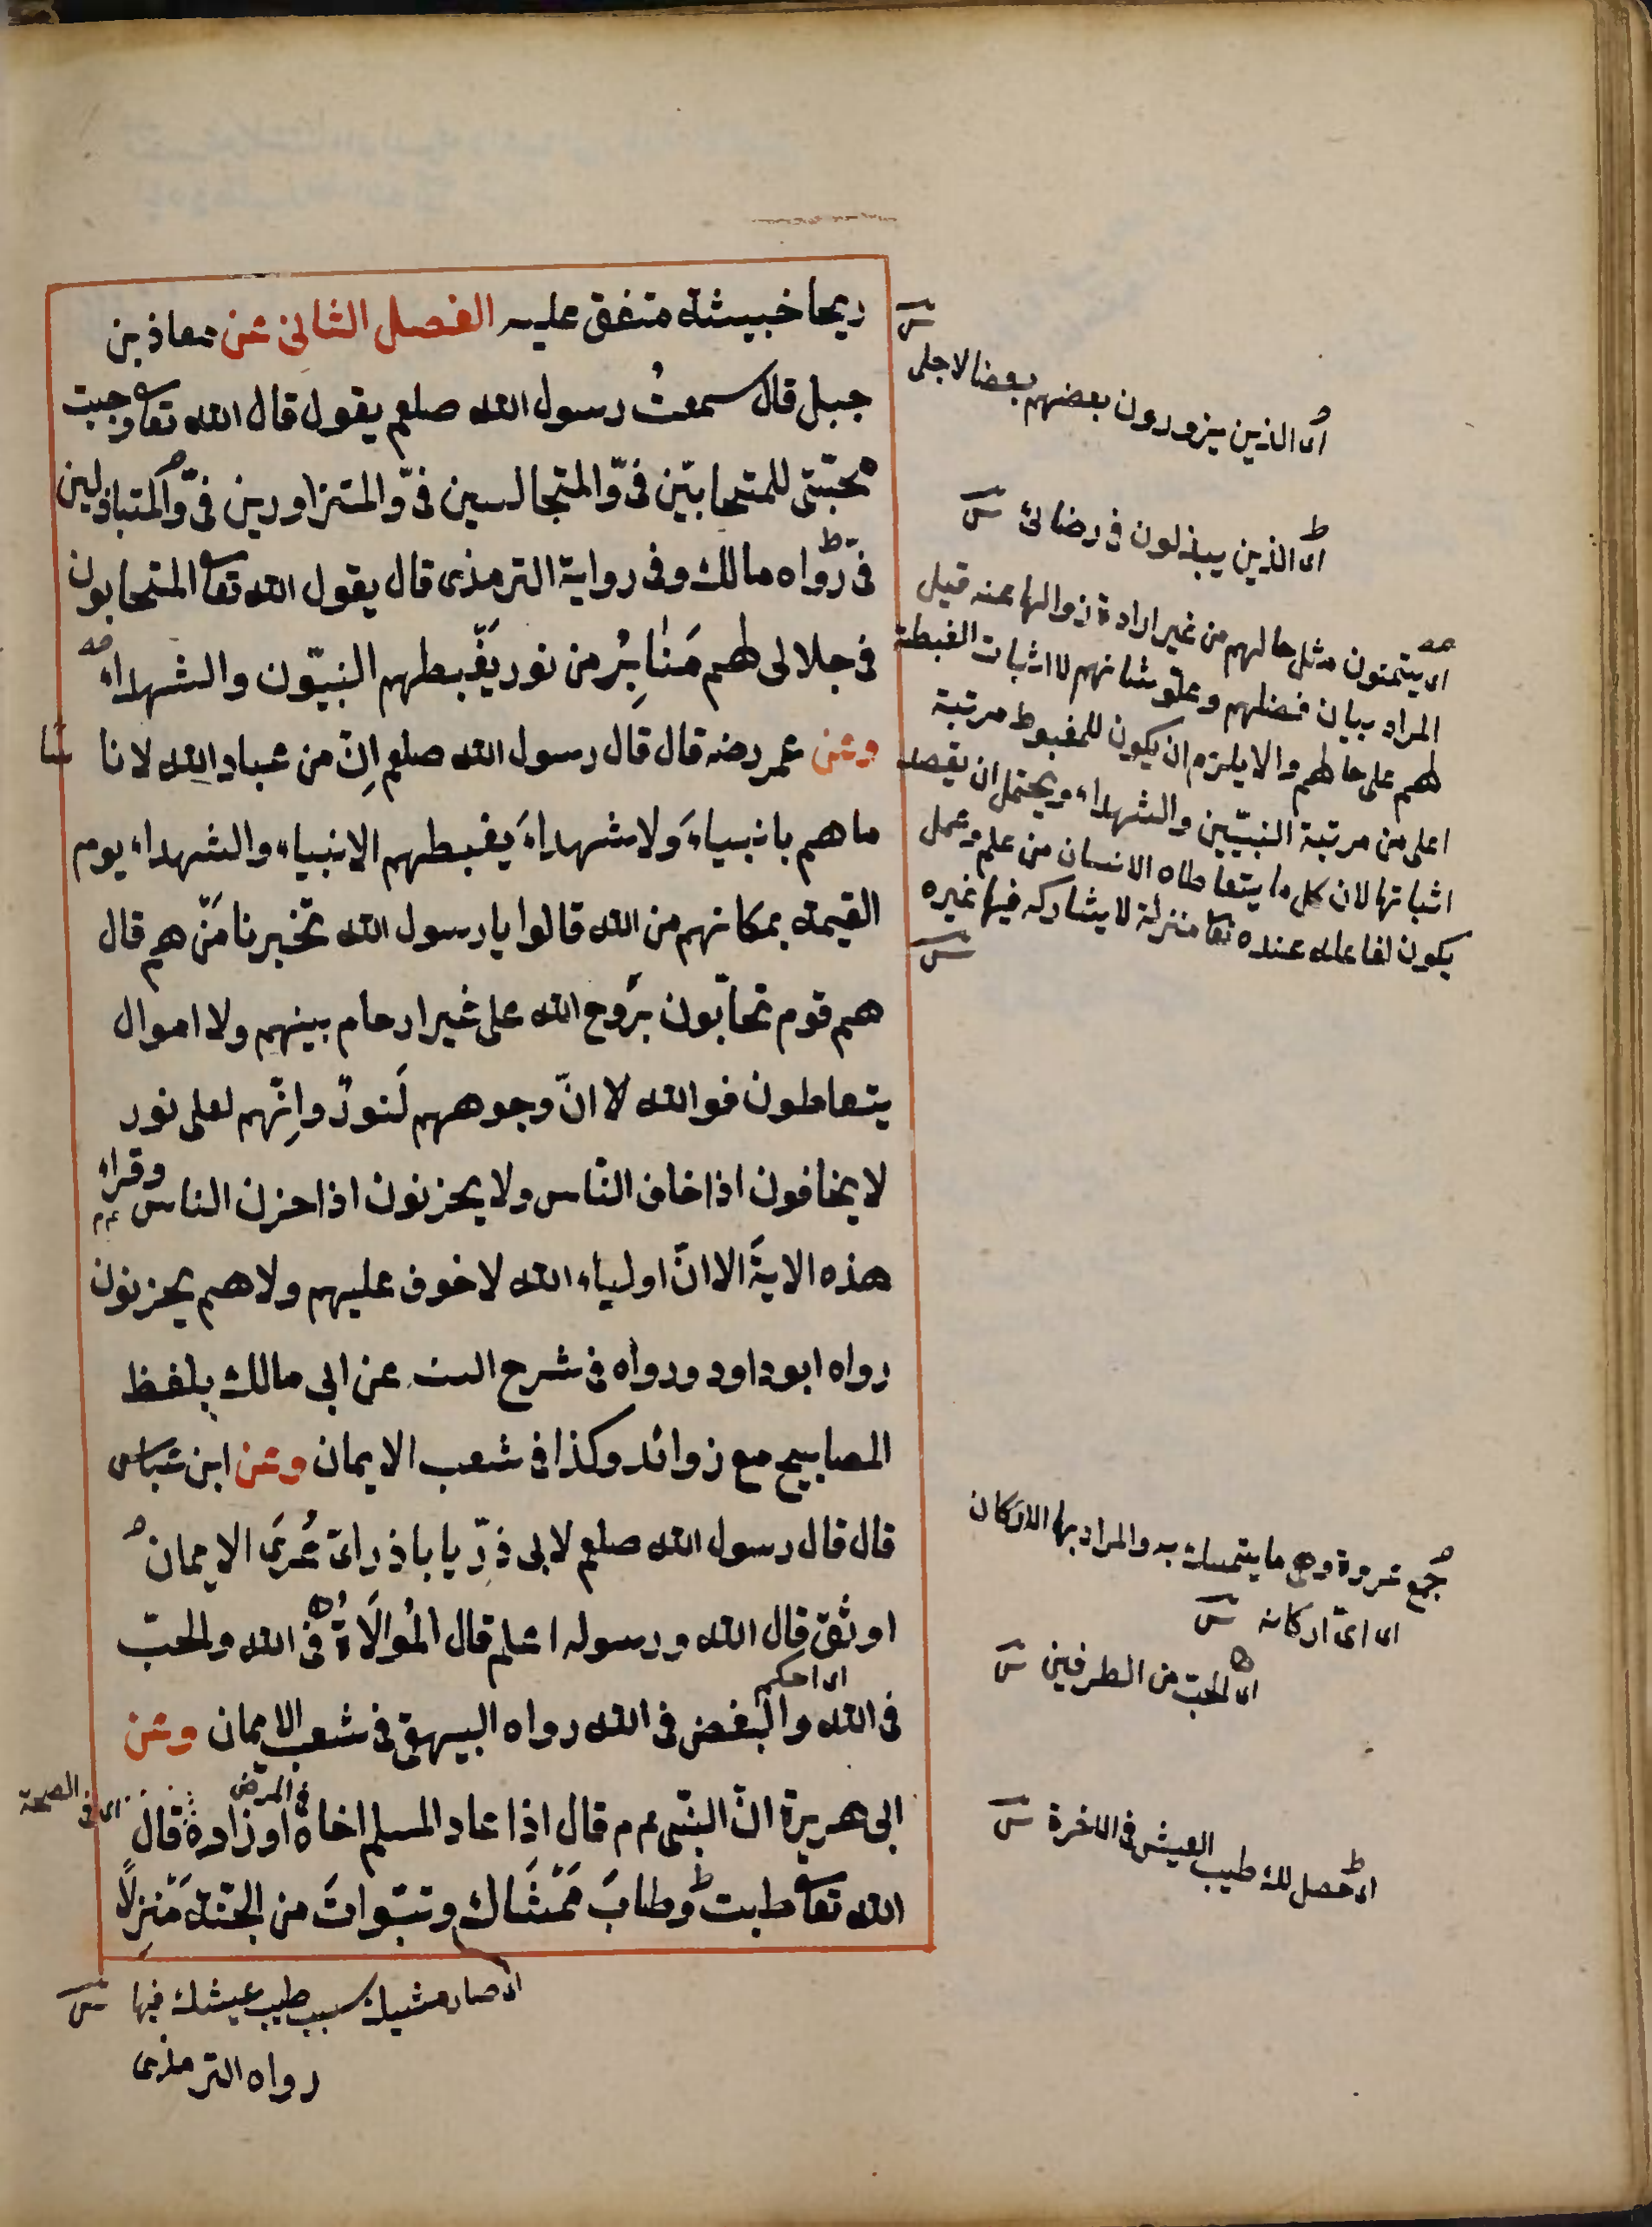 ريحا خبيثة متفق عليه الفصل الثانى عن معاذ بن
جبل قال سمعتُ رسول الله صلعم يقول قال الله تعا وجبت
محبّتى للمتحابّين فىّ والمتجالسين فىّ والمتزاورين فىّ والمتباذلين
فىّ رواه مالك وفى رواية الترمذى قال يقول الله تعا المتحابون
فى جلالى لهم مَنابِرُ من نور يَغْبطهم النبيّون والشهداء
وعن عمر رضه قال قال رسول الله صلعم اِنّ من عباد الله لانا سًا
ما هم بانبياءَ ولا شهداءَ يغبطهم الانبياء والشهداء يوم
القيمة بمكانهم من الله قالوا يا رسول الله تخبرنا مَنْ هم قال
هم قوم تحابّون بَروح الله على غير ارحام بينهم ولا اموال
يتعاطون فوالله لا انّ وجوههم لَنورٌ واِنّهم لعلى نور
لا يخافون اذا خاف النّاس ولا يحزنون اذا حزن الناس وقراء
هذه الايةَ الا انّ اولياء الله لا خوف عليهم ولا هم يحزنون
رواه ابو داود ورواه فى شرح السنه عن ابى مالك بلفظ
المصابيح مع زوائد وكذا فى شعب الايمان وعن ابن عباس
قال قال رسول الله صلعم لابى ذرّ يا باذر اىّ عُرَى الايمان
اوثق قال الله ورسوله اعلم قال المُوالَاةُ فى الله والحبّ
اى احكم
فى الله والبغض فى الله رواه البيهقى فى شعب الايمان وعن
فى المرض
اى فى الصحة
ابى هريرة انّ النبّى عم قال اِذا عاد المسلم اخاه او زاره قال
الله تعا طبت وطابَ مَمْشَاك وتبوات من الجنّة مَنزِلًا
اى صار مشيك سبب طيب عيشك فيها
رواه الترمذى
اى الذين يزورون بعضهم بعضا لاجلى
اى الذين يبذلون فى رضائى
اى يتمنون مثل حالهم من غير ارادة زوالها عنه قيل
المراد بيان فضلهم وعلو شانهم لا اثبات الغبطة
لهم على حالهم والا يلزم ان يكون للمغبوط مرتبة
اعلى من مرتبة النبيّين والشهداء ويحتمل ان يقصد
اثباتها لان كل ما يتعاطاه الانسان من علم وعمل
يكون لفاعله عنده تعا منزلة لا يشاركه فيها غيره
جمع عروة وهى ما يتمسك به والمراد بها الاركان
اى اىّ اركانه
اى الحبّ من الطرفين
اى حصل لك طيب العيش فى الاخرة